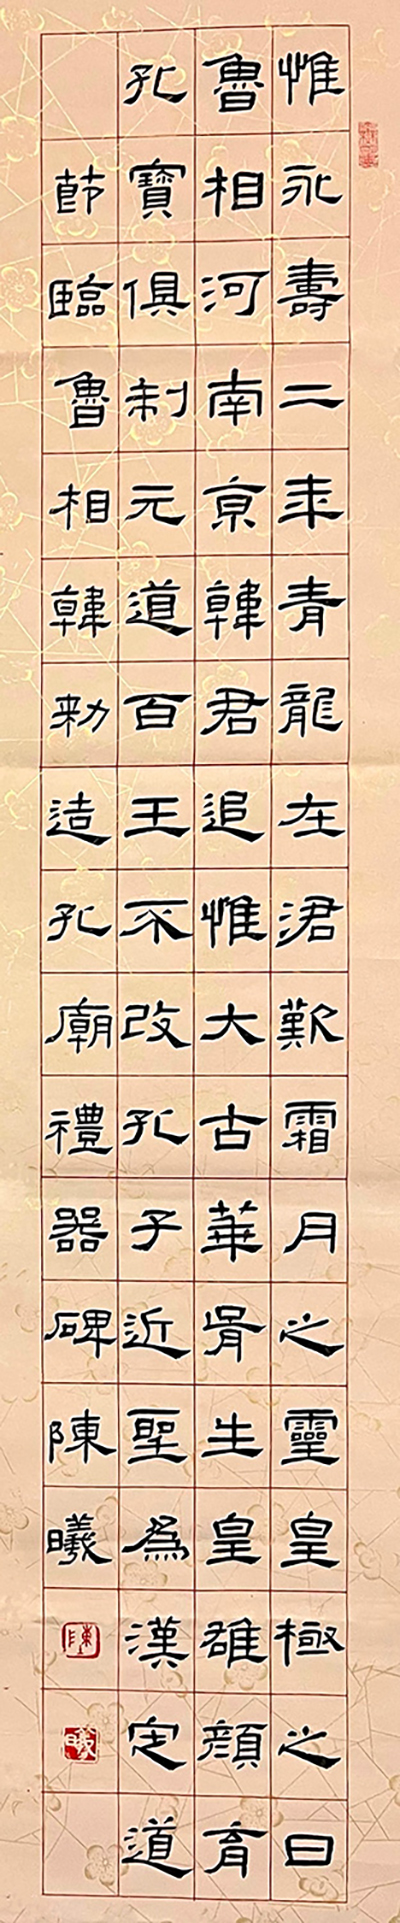 惟永壽二年青龍在涒歎霜月之靈皇極之日
魯相河南京韓君追惟大古華胥生皇雄顏育
孔寶俱制元道百王不改孔子近聖為漢定道
節臨魯相韓勑造孔廟禮器碑陳曦
陳
曦